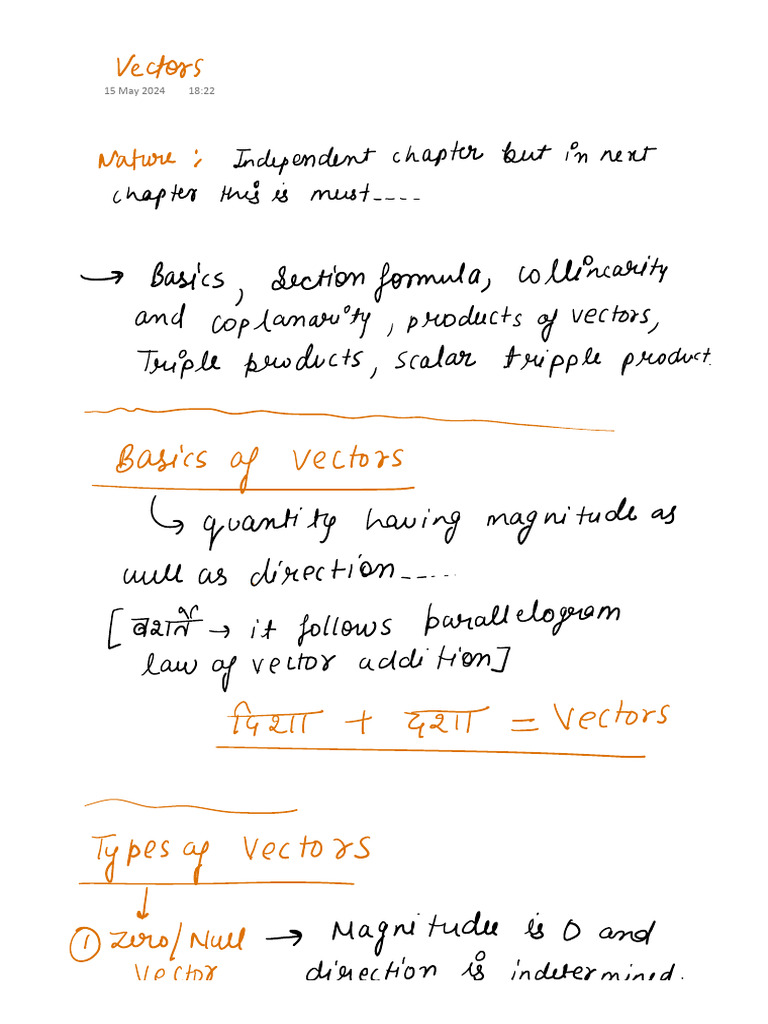 Vectors
15 May 2024 18:22
Nature: Independent chapter but in next
chapter this is must....
→ Basics, Section formula, collinearity
and coplanarity, products of vectors,
Triple products, scalar tripple product.
Basics of vectors
↳ quantity having magnitude as
well as direction.....
[बशर्ते → it follows parallelogram
law of vector addition]
दिशा + दशा = Vectors
Types of Vectors
① Zero/Null → Magnitude is 0 and
Vector direction is indetermined.